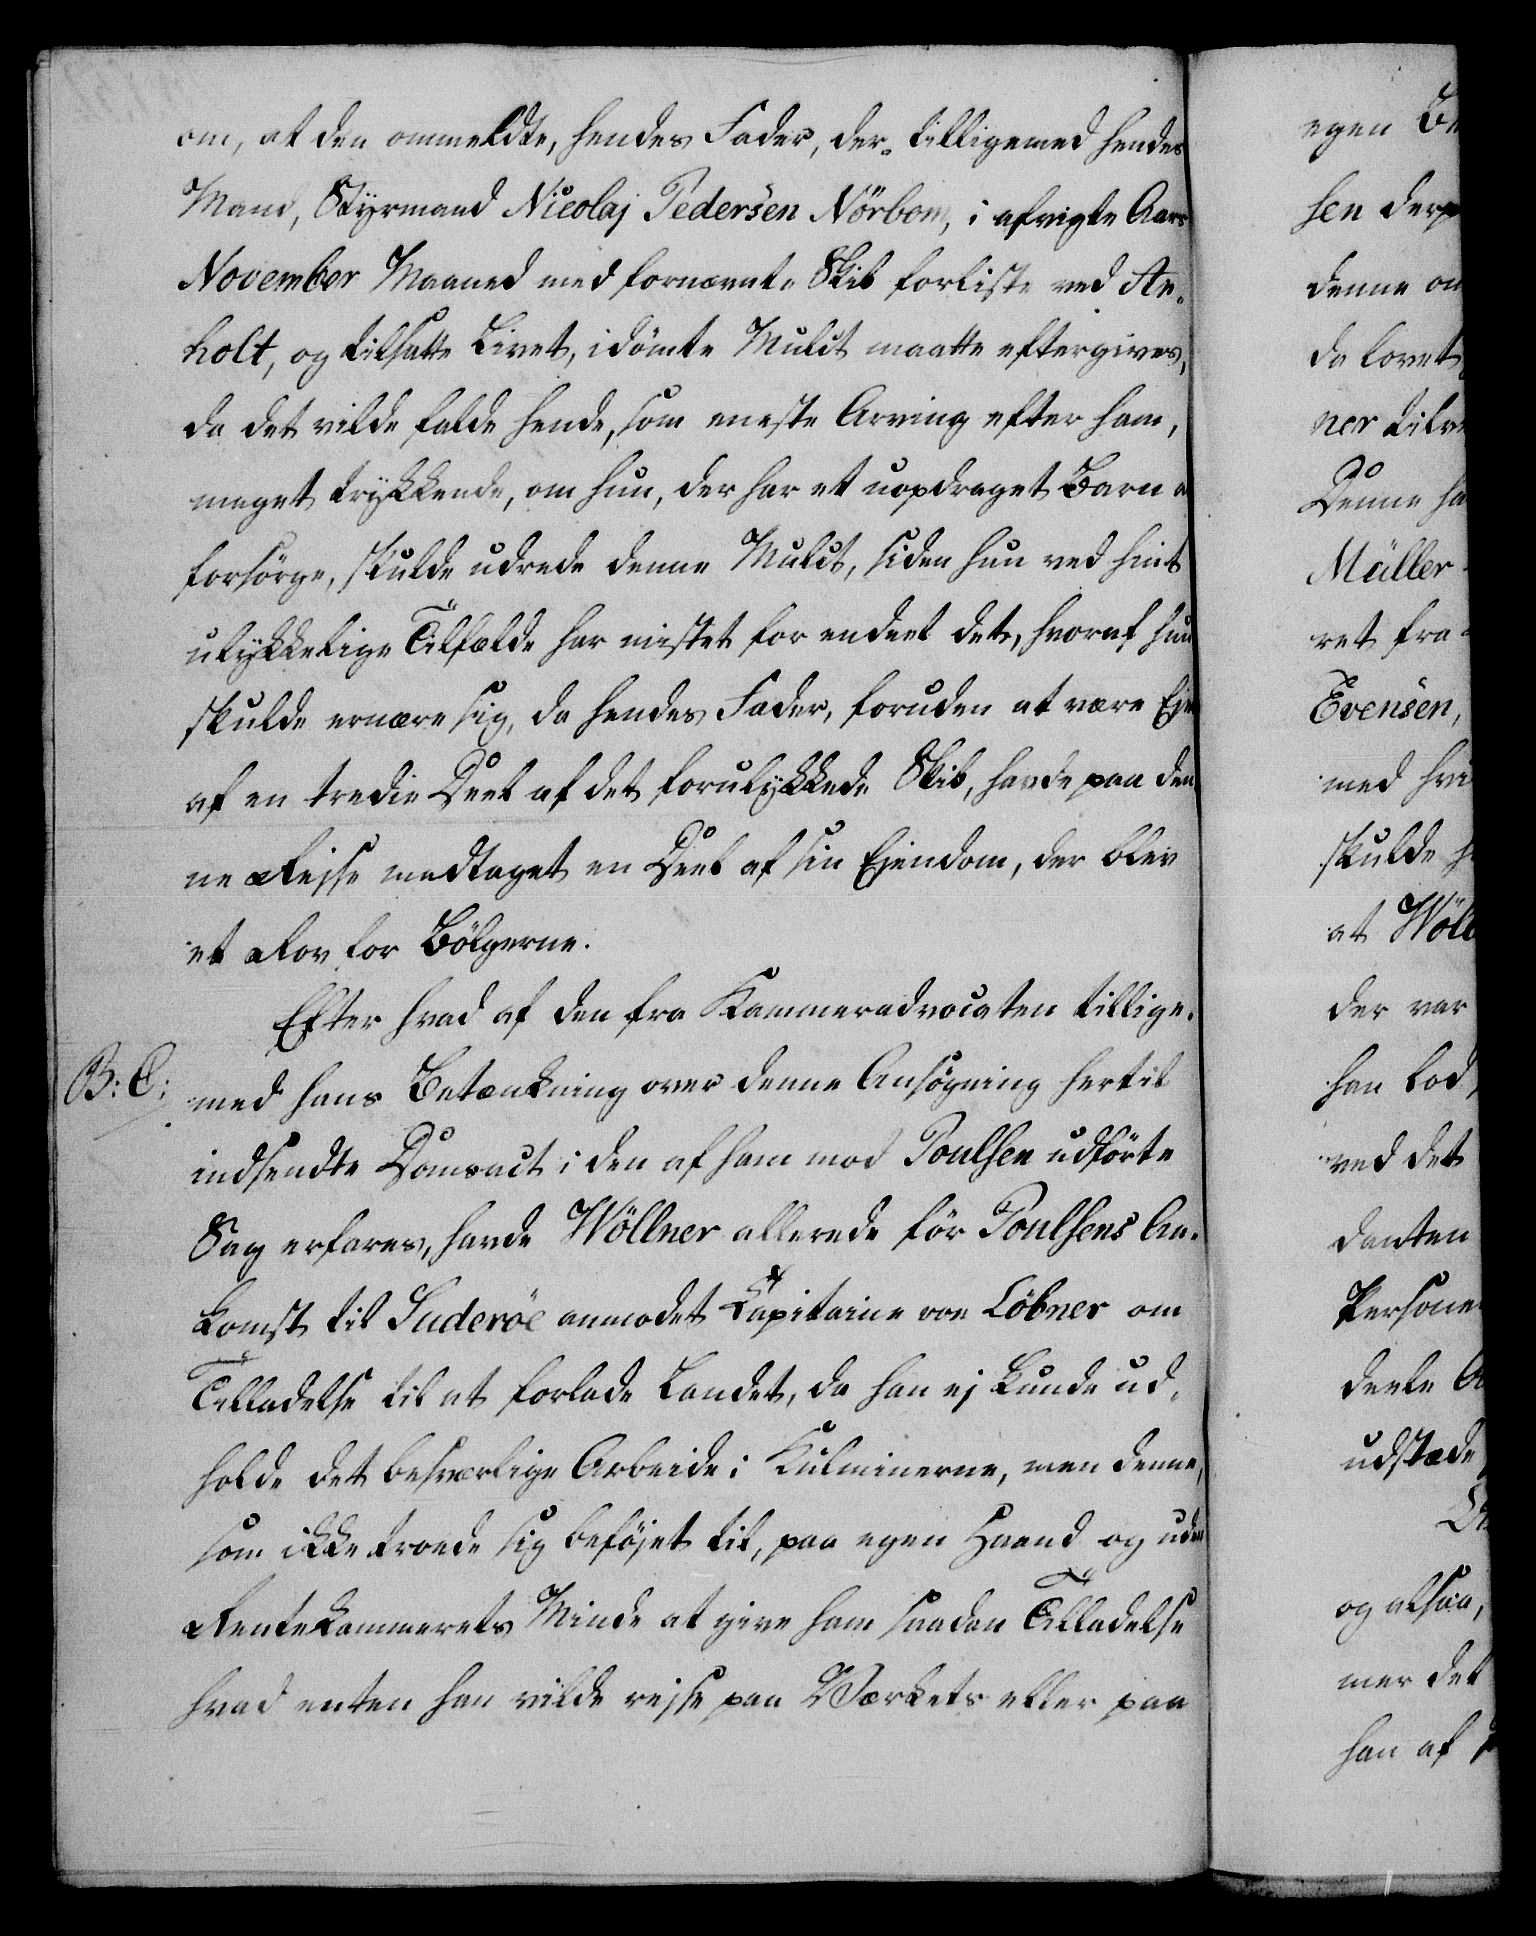 om, at den ommeldte, hendes Fader, der tilligemed hendes
Mand, Styrmand Nicolaj Pedersen Nörbom, i afvigte Aars
November Maaned med fornævnte Skib forliste ved An-
holt, og tilsatte Livet, idömte Mulct maatte eftergives,
da det vilde falde hende, som eneste Arving efter ham,
meget trykkende, om hun, der har et uopdraget Barn a
forsörge, skulde udrede denne Mulct, siden hun ved hint
ulykkelige Tilfælde har mistet for endeel det, hvoraf hun
skulde ernære sig, da hendes Fader, foruden at være Eje
af en tredie Deel af det forulykkede Skib, havde paa den
ne Rejse medtaget en Deel af sin Ejendom, der blev
et Rov for Bölgerne.
Efter hvad af den fra Kammeradvocaten tillige-
B: C:
med hans Betænkning over denne Ansögning hertil
indsendte Domsact i den af ham mod Poulsen udförte
Sag erfares, havde Wöllner allerede för Poulsens An-
komst til Suderöe anmodet Capitaine von Löbner om
Tilladelse til at forlade Landet, da han ej kunde ud-
holde det besværlige Arbeide i Kulminerne, men denne,
som ikke troede sig beföjet til, paa egen Haand og uden
Rentekammerets Minde at give ham saadan Tilladelse
hvad enten han vilde rejse paa Værkets eller paa
egen
sen
denne
da lovet
ner
Denne
Müller
ret fra
Evensen,
med
skulde
at
der var
han lod
ved det
danten
deele
udstæde
og altsaa,
mer det
han af